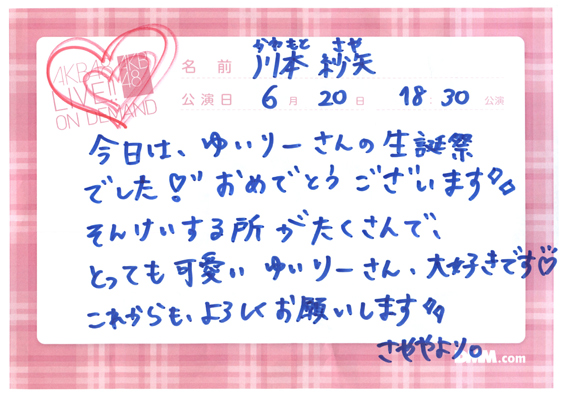 AKB48
LIVE!!
ON DEMAND
AKB
48
かわもと さや
名前 川本 紗矢
公演日 6月 20日 18:30 公演
今日は、ゆいりーさんの生誕祭
でした♡" おめでとうございます
そんけいする所がたくさんで、
とっても可愛いゆいりーさん、大好きです♡
これからも、よろしくお願いします
さややより。
.com